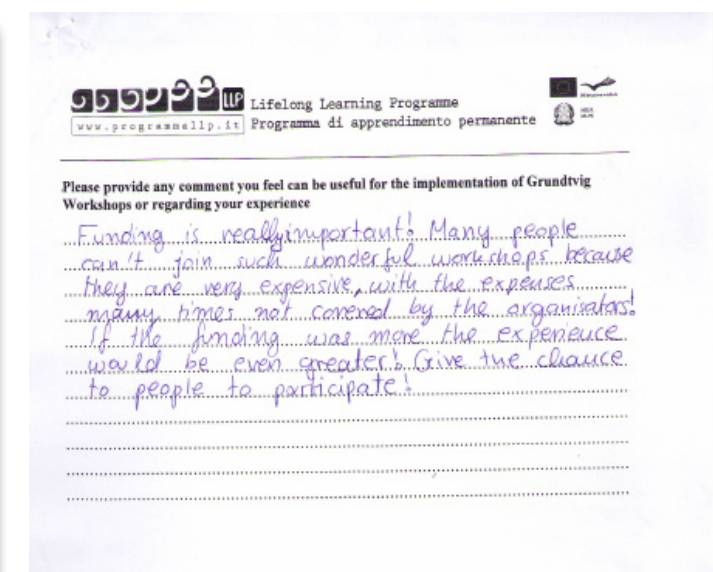 LLP Lifelong Learning Programme
www.programmallp.it Programma di apprendimento permanente
Please provide any comment you feel can be useful for the implementation of Grundtvig
Workshops or regarding your experience
Funding is really important! Many people
can't join such wonderful workshops because
they are very expensive, with the expenses
many times not covered by the organisators!
If the funding was more the experience
would be even greater! Give the chance
to people to participate!